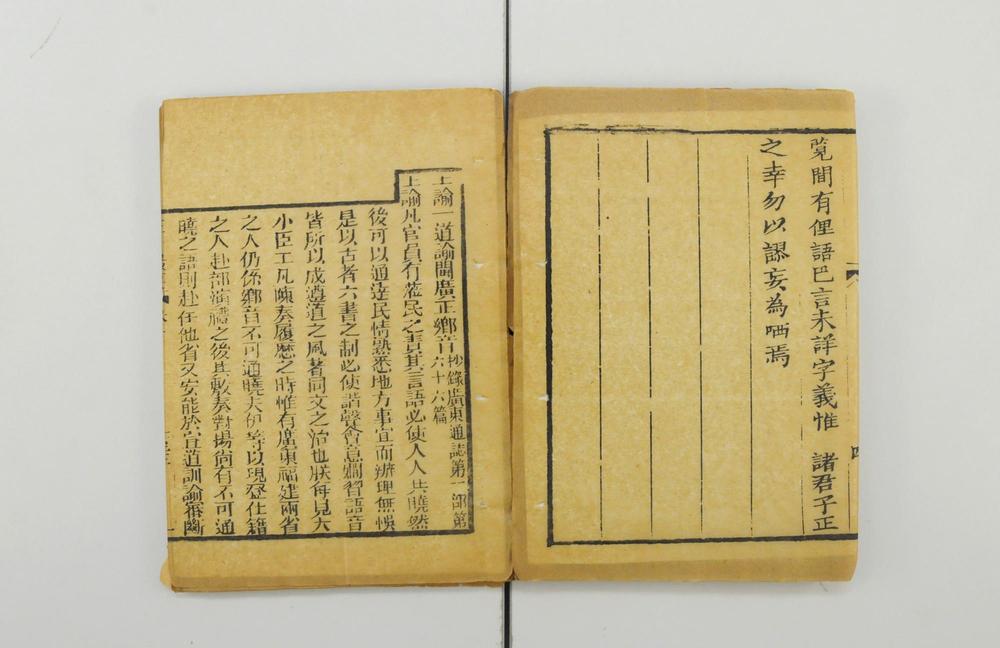 覽間有俚語巴言未詳字義惟 諸君子正
之幸勿以謬妄為哂焉
四
上諭一道諭閩廣正鄉音 抄錄廣東通誌第一部第
六十六篇
上諭凡官員有蒞民之責其言語必使人人共曉然
後可以通達民情熟悉地方事宜而辨理無悞
是以古者六書之制必使諧聲會意嫺習語音
皆所以成遵道之風著同文之治也朕每見大
小臣工凡陳奏履歷之時惟有廣東福建兩省
之人仍係鄉音不可通曉夫伊等以現登仕籍
之人赴部演禮之後其敷奏對揚尚有不可通
曉之語則赴任他省又安能於宣道訓諭審斷